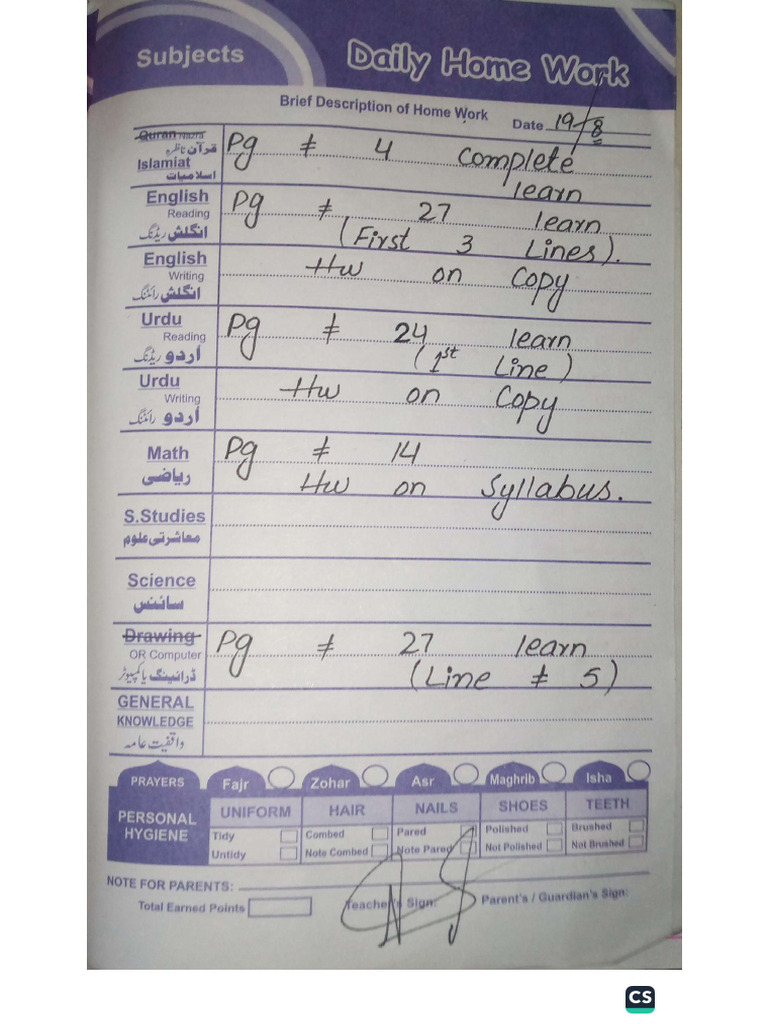 Subjects
Daily Home Work
Brief Description of Home Work
Date 19/8
Quran Nazra
قرآن ناظرہ
Islamiat
اسلامیات
Pg # 4 Complete
learn
English
Reading
انگلش ریڈنگ
Pg # 27 learn
(First 3 Lines).
English
Writing
انگلش رائٹنگ
Hw on Copy
Urdu
Reading
اُردو ریڈنگ
Pg # 24 learn
(1st Line)
Urdu
Writing
اُردو رائٹنگ
Hw on Copy
Math
ریاضی
Pg # 14
Hw on Syllabus.
S.Studies
معاشرتی علوم
Science
سائنس
Drawing
OR Computer
ڈرائینگ یا کمپیوٹر
Pg # 27 learn
(Line # 5)
GENERAL
KNOWLEDGE
واقفیت عامہ
PRAYERS Fajr Zohar Asr Maghrib Isha
PERSONAL
HYGIENE
UNIFORM HAIR NAILS SHOES TEETH
Tidy Combed Pared Polished Brushed
Untidy Note Combed Note Pared Not Polished Not Brushed
NOTE FOR PARENTS:
Total Earned Points Teacher's Sign: Parent's / Guardian's Sign:
CS